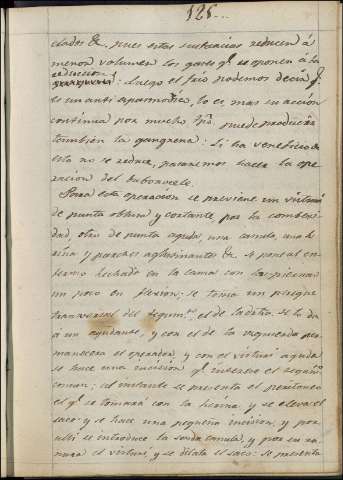 125..
elados &. pues estas sustancias reducen á
menor volumen los gases q.e se oponen á la
reduccion: luego el frio podemos decir q.
es un anti espasmodico, lo es, mas su accion
continua por mucho tpo, puede producir
tambien la gangrena: Si ha veneficio de
esto no se reduce, pasaremos hacer la ope
racion del bubonocele.
Para esta operacion se previene un visturi
de punta obtusa y cortante por la combexi
dad, otro de punta aguda, una canula, una h
erina y parches aglutinantes &. A puesto el en
fermo hechado en la cama con las piernas
un poco en flexion; se toma un pliegue
transversal del tegum.to el de la dra. se le da
á un ayudante, y con el de la izquierda per
manecera el operador, y con el visturi agudo
se hace una incision q.e interese el tegum.to
comun; al instante se presenta el peritoneo
el q.e se tomará con la herina y se eleva el
saco y se hace una pequeña incision, y por
alli se introduce la sonda canula, y por su ra
nura el visturi, y se dilata el saco: se presenta